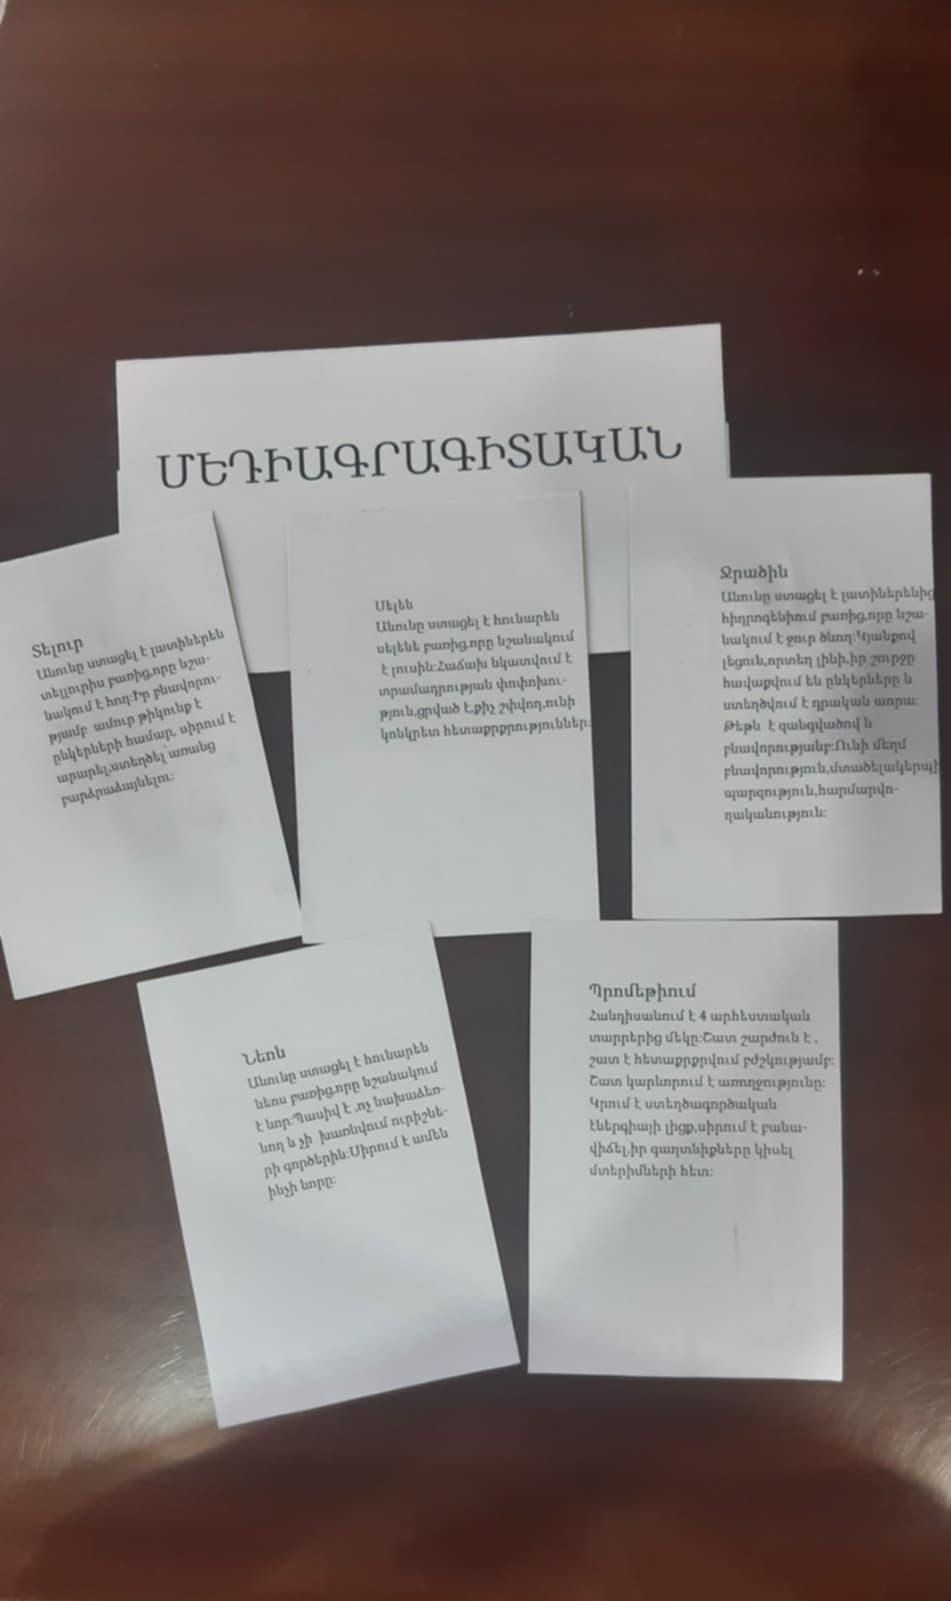 ՄԵԴԻԱԳՐԱԳԻՏԱԿԱՆ
Տելուր
Անունը ստացել է լատիներեն
տելլուրիս բառից,որը նշա-
նակում է հող:Իր բնավորու-
թյամբ ամուր թիկունք է
ընկերների համար, սիրում է
արարել,ստեղծել՝առանց
բարձրաձայնելու:
Սելեն
Անունը ստացել է հունարեն
սելենե բառից,որը նշանակում
է լուսին:Հաճախ նկատվում է
տրամադրության փոփոխու-
թյուն,ցրված է,քիչ շփվող,ունի
կոնկրետ հետաքրքրություններ:
Ջրածին
Անունը ստացել է լատիներենից
հիդրոգենիում բառից,որը նշա-
նակում է ջուր ծնող:Կյանքով
լեցուն,որտեղ լինի,իր շուրջը
հավաքվում են ընկերները և
ստեղծվում է դրական աորա:
Թեթև է զանգվածով և
բնավորությանբ:Ունի մեղմ
բնավորություն,մտածելակերպի
պարզություն,հարմարվո-
ղականություն:
Նեոն
Անունը ստացել է հունարեն
նեոս բառից,որը նշանակում
է նոր:Պասիվ է ,ոչ նախաձեռ-
նող և չի խառնվում ուրիշնե-
րի գործերին:Սիրում է ամեն
ինչի նորը:
Պրոմեթիում
Հանդիսանում է 4 արհեստական
տարրերից մեկը:Շատ շարժուն է ,
շատ է հետաքրքրվում բժշկությամբ:
Շատ կարևորում է առողջությունը:
Կրում է ստեղծագործական
էներգիայի լիցք,սիրում է բանա-
վիճել,իր գաղտնիքները կիսել
մտերիմների հետ: